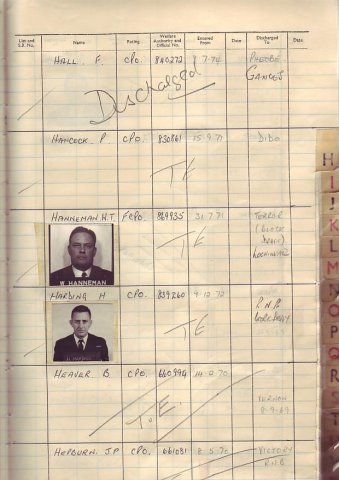 List and S.R. No.
Name
Rating
Welfare Authority and Official No.
Entered From
Date
Discharged To
Date
HALL. F. CPO. 840273 8.7.74 PHOEBE
GANGES
Discharged
HANCOCK. P. CPO. 830861 15.9.71 DIDO
TE
HANNEMAN. W.T FCPO. 869935 31.7.71 TERROR
TE
W. HANNEMAN
HARDING H CPO. 839260 9.10.72
TE
H. HARDING
HEAVER. B. CPO. 660994 70.
T.E.
HEPBURN. J.P CPO. 661081 8.5.70 VICTORY
RNB
H
I
J
K
L
M
N
O
P
Q
R
S
T